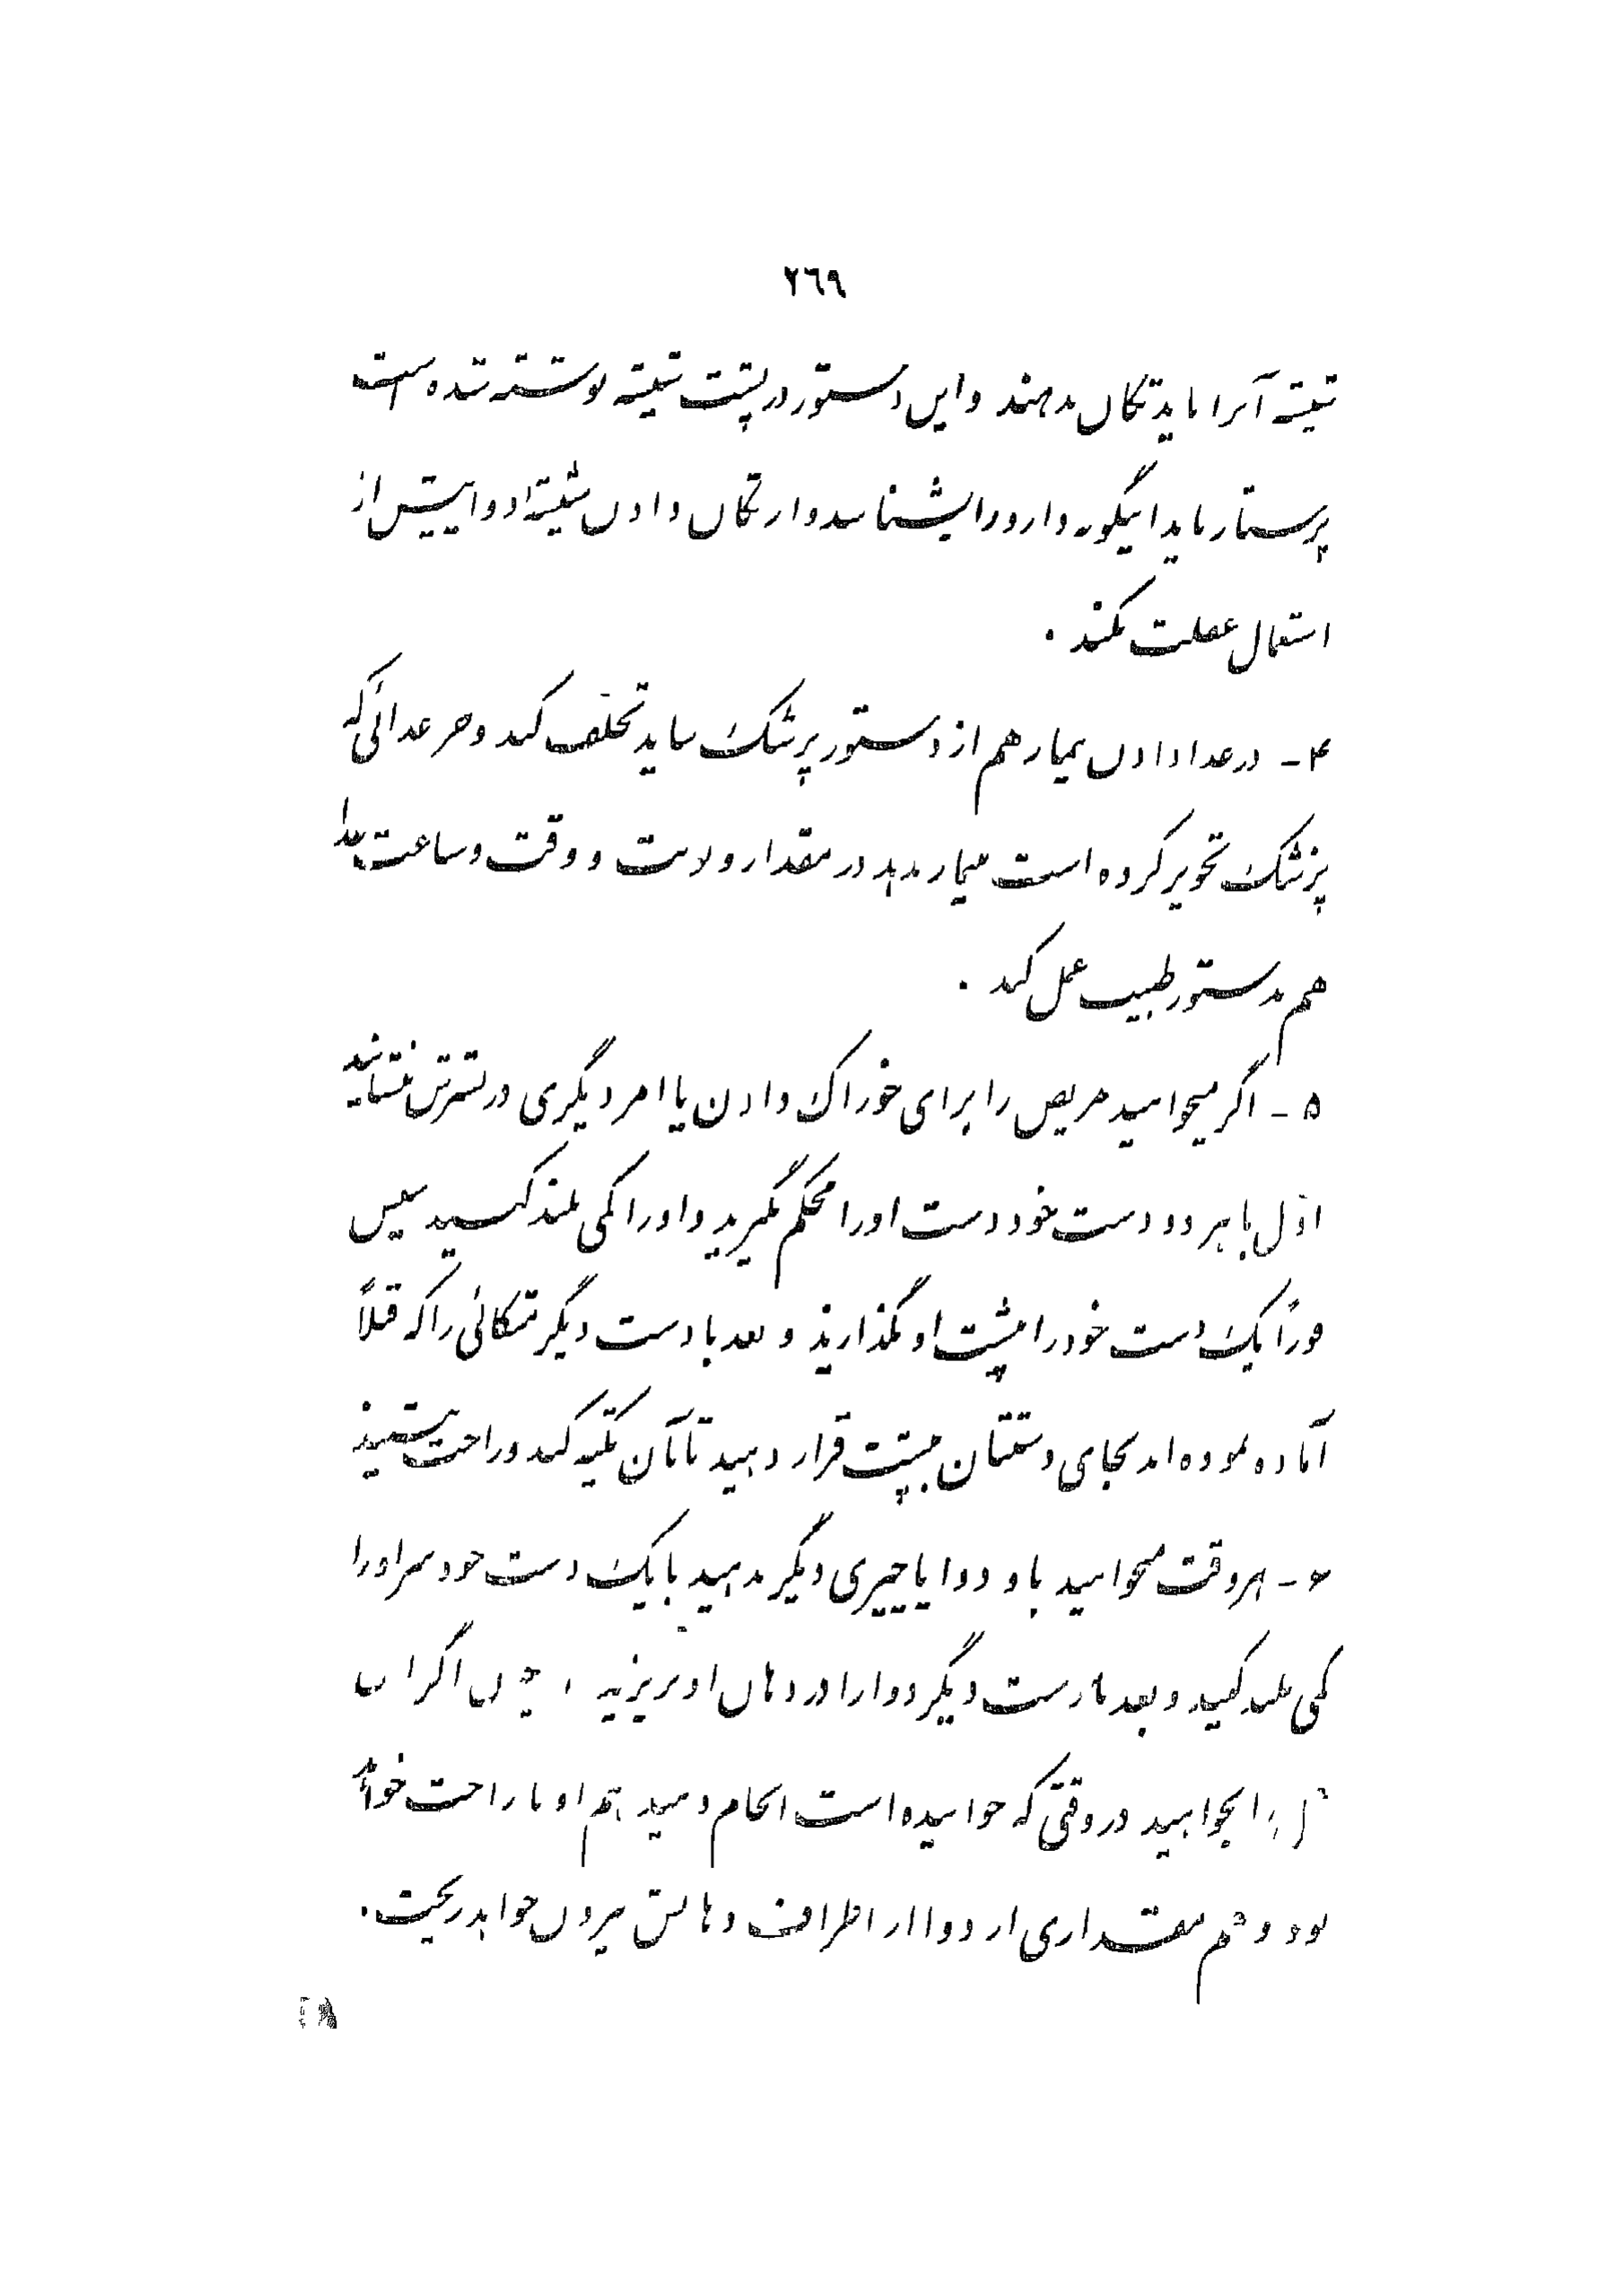 ٢٦٩
شیشه آنرا باید تکان بدهند و این دستور در پشت شیشه نوشته شده است
پرستار باید اینگونه دارو را بشناسد و از تکان دادن شیشهٔ دوا پیش از
استعمال غفلت نکند .
۴ - در غذا دادن بیمار هم از دستور پزشک نباید تخلف کند و هر غذائی که
پزشک تجویز کرده است ببیمار بدهد در مقدار و وقت و ساعت غذا
هم بدستور طبیب عمل کند .
۵ - اگر میخواهید مریض را برای خوراک دادن یا امر دیگری در بسترش بنشانید
اوّل با هر دو دست خود دست او را محکم بگیرید و او را کمی بلند کنید سپس
فوراً یک دست خود را بپشت او بگذارید و بعد با دست دیگر متکائی را که قبلاً
آماده نموده‌اید بجای دستتان بپشت قرار دهید تا بآن تکیه کند و راحت بنشیند
۶ - هر وقت میخواهید باو دوا یا چیزی دیگر بدهید با یک دست خود سر او را
کمی بلند کنید و بعد با دست دیگر دوا را در دهان او بریزید ، چون اگر این
را بخواهید در وقتی که خوابیده است انجام دهید هم او ناراحت خواهد
بود و هم مقداری از دوا از اطراف دهانش بیرون خواهد ریخت .